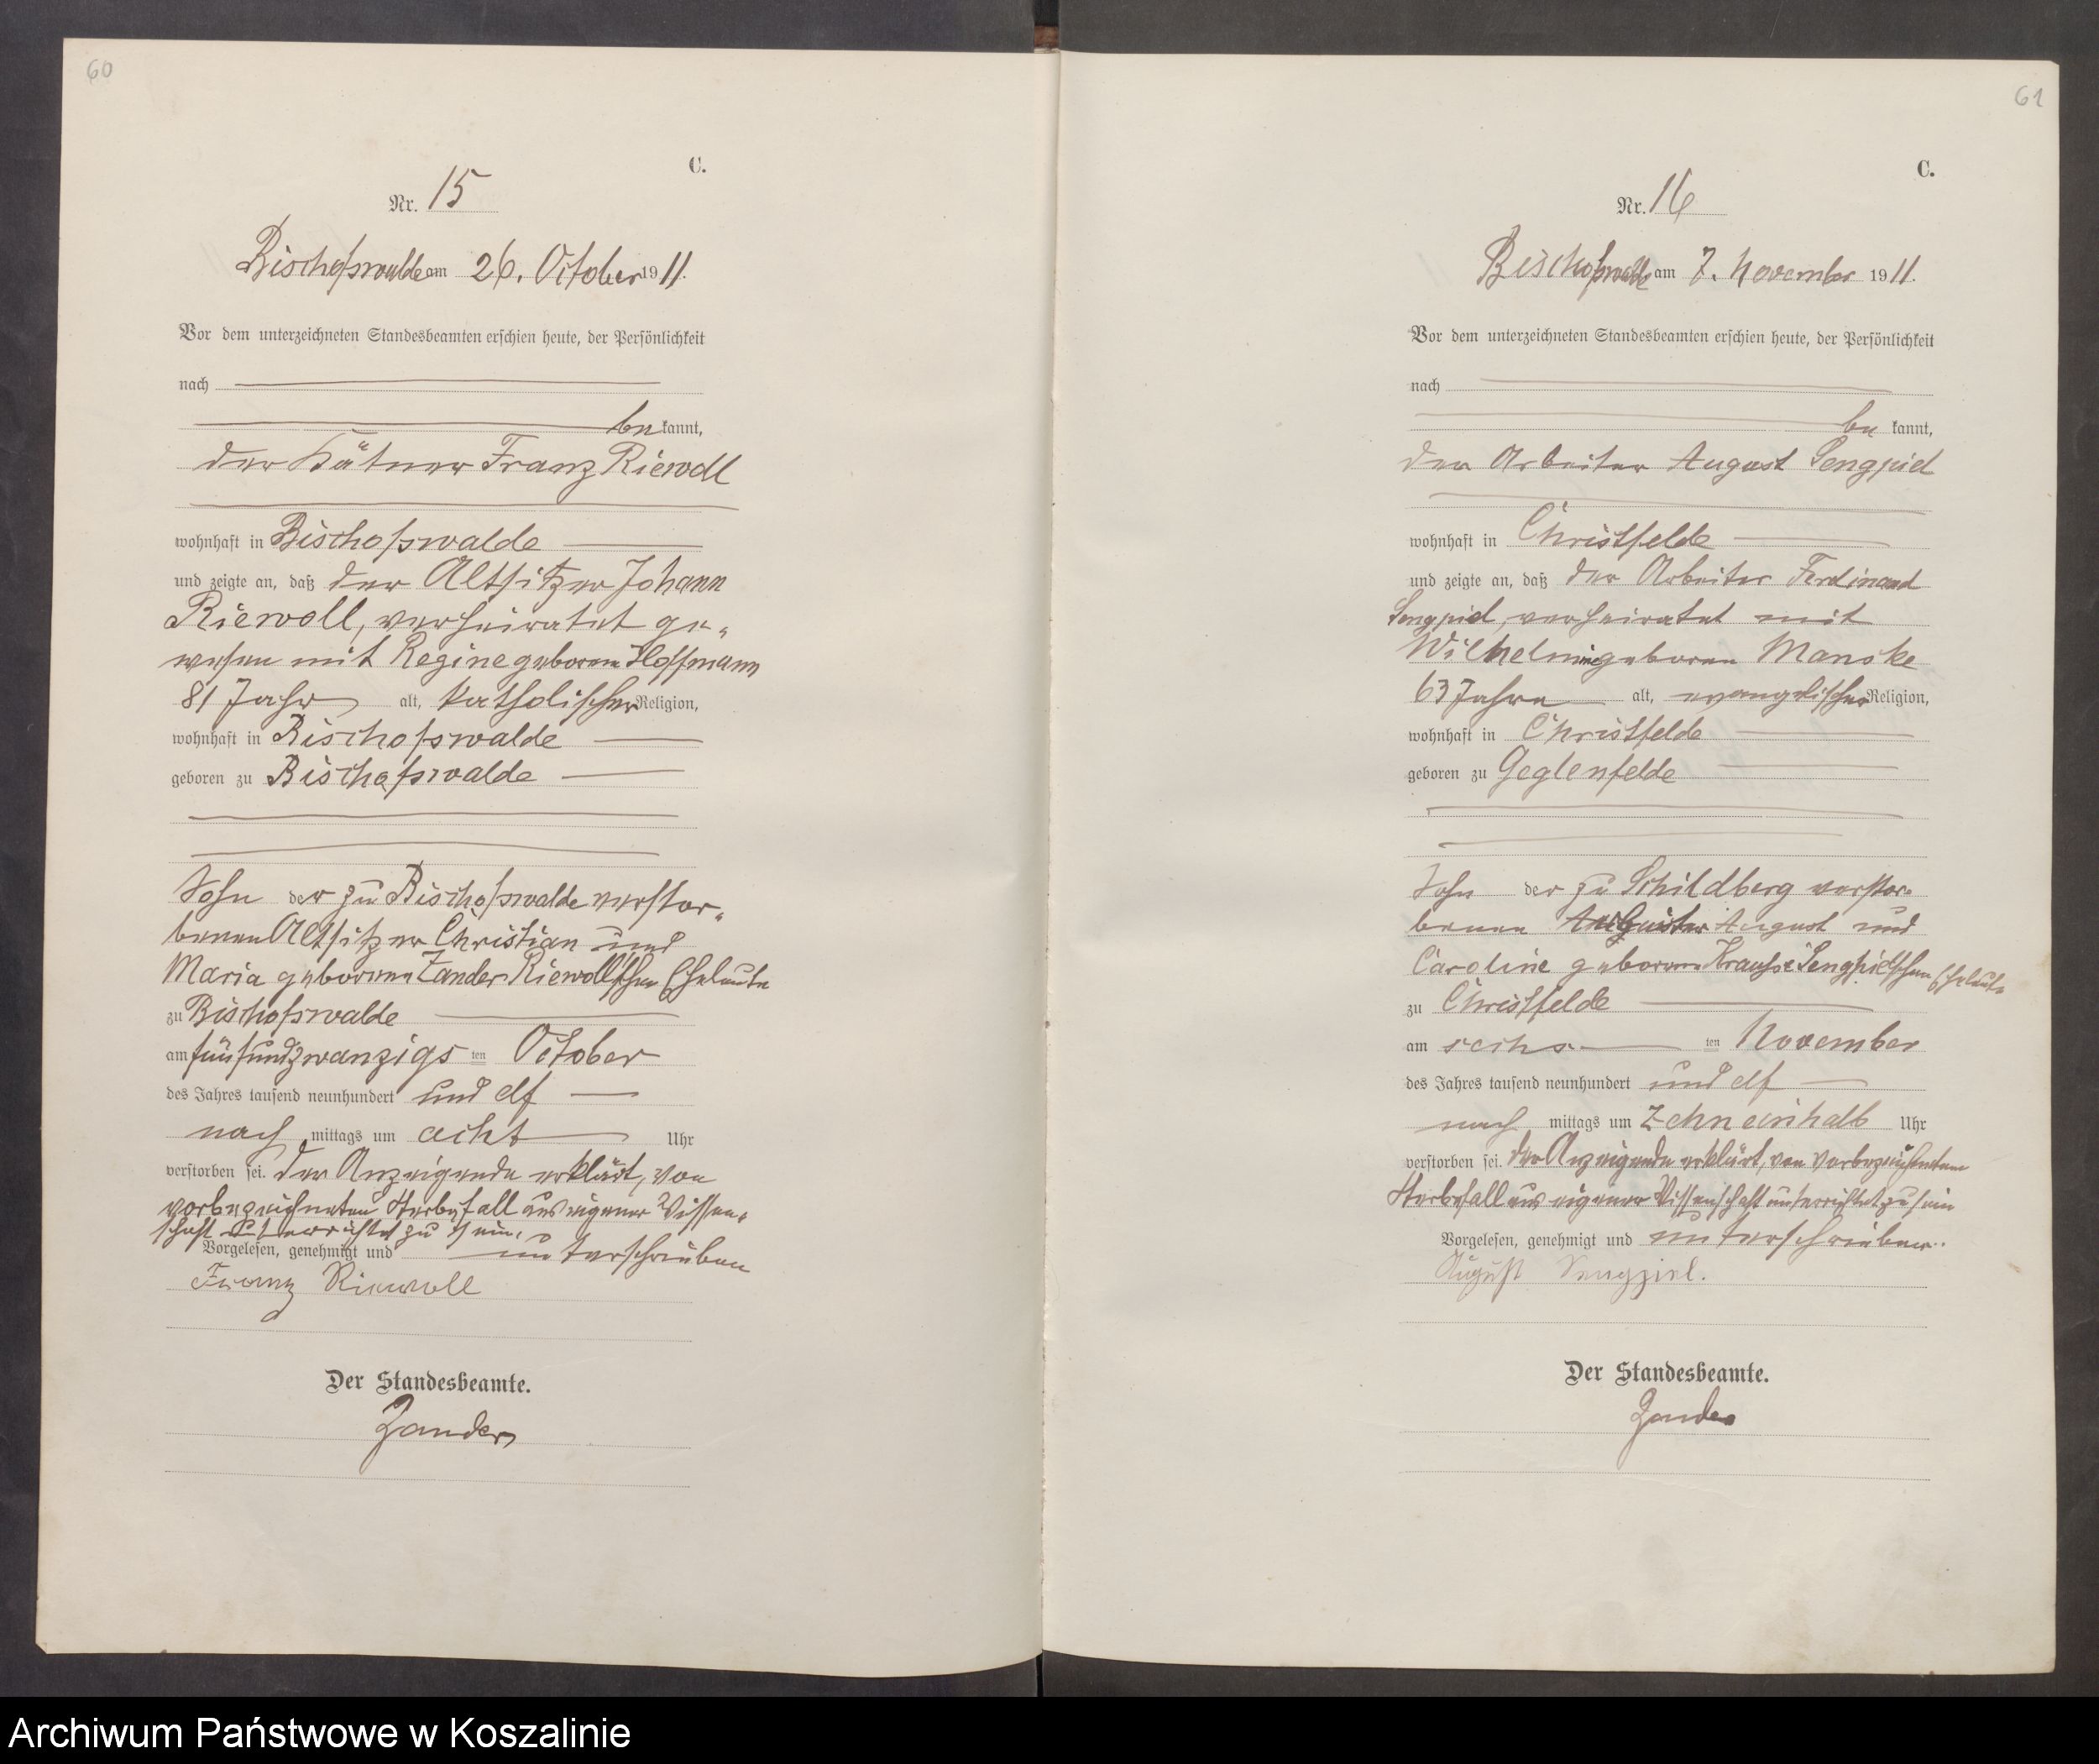 60
C.
Nr. 15
Bischofswalde am 26. October 1911.
Vor dem unterzeichneten Standesbeamten erschien heute, der Persönlichkeit
nach
be kannt,
der Kätner Franz Riewoll
wohnhaft in Bischofswalde
und zeigte an, daß der Altsitzer Johann
Riewoll, verheiratet ge-
wesen mit Regine geborene Hoffmann
81 Jahr alt, katholischer Religion,
wohnhaft in Bischofswalde
geboren zu Bischofswalde
Sohn der zu Bischofswalde verstor-
benen Altsitzer Christian und
Maria geborene Zander Riewoll'schen Eheleute
zu Bischofswalde
am fünfundzwanzigs ten October
des Jahres tausend neunhundert und elf
nach mittags um acht Uhr
verstorben sei. Der Anzeigende erklärt, von
vorbezeichneten Sterbefall aus eigener Wissen-
schaft unterrichtet zu sein.
Vorgelesen, genehmigt und unterschrieben
Franz Riewoll
Der Standesbeamte.
Zander
61
C.
Nr. 16
Bischofswalde am 7. November 1911.
Vor dem unterzeichneten Standesbeamten erschien heute, der Persönlichkeit
nach
be kannt,
der Arbeiter August Sengpiel
wohnhaft in Christfelde
und zeigte an, daß der Arbeiter Ferdinand
Sengpiel, verheiratet mit
Wilhelmine geboren Manske
63 Jahre alt, evangelischer Religion,
wohnhaft in Christfelde
geboren zu Geglenfelde
Sohn der zu Schildberg verstor-
benen August und
Caroline geborene Krause Sengpiel'schen Eheleute
zu Christfelde
am sechs ten November
des Jahres tausend neunhundert und elf
nach mittags um zehneinhalb Uhr
verstorben sei. Der Anzeigende erklärt, von vorbezeichnetem
Sterbefall aus eigener Wissenschaft unterrichtet zu sein
Vorgelesen, genehmigt und unterschrieben.
August Sengpiel.
Der Standesbeamte.
Zander
Archiwum Państwowe w Koszalinie